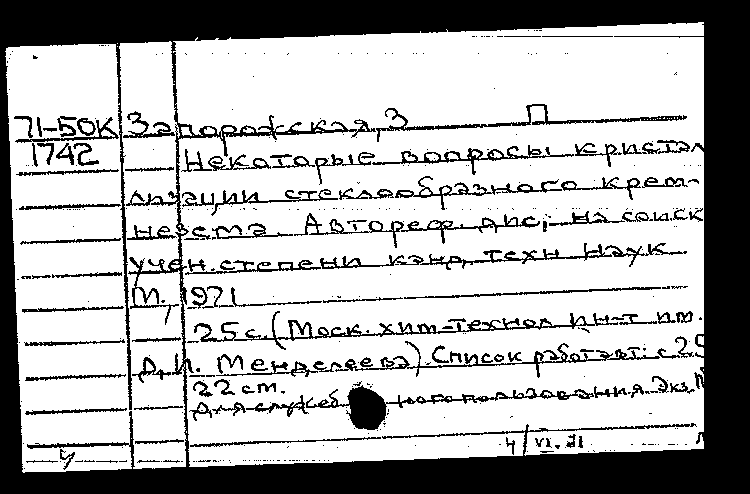 71-50К Запорожская, З П
1742 Некоторые вопросы кристал
лизации стеклообразного крем-
незема. Автореф. дис, на соиск
учен. степени канд. техн наук
М., 1971
25 с. (Моск. хим-технол ин-т им.
Д. И. Менделеева) Список работ авт: с 25
22 см.
Для служеб ного пользования. Экз №
У 4/VI. 71